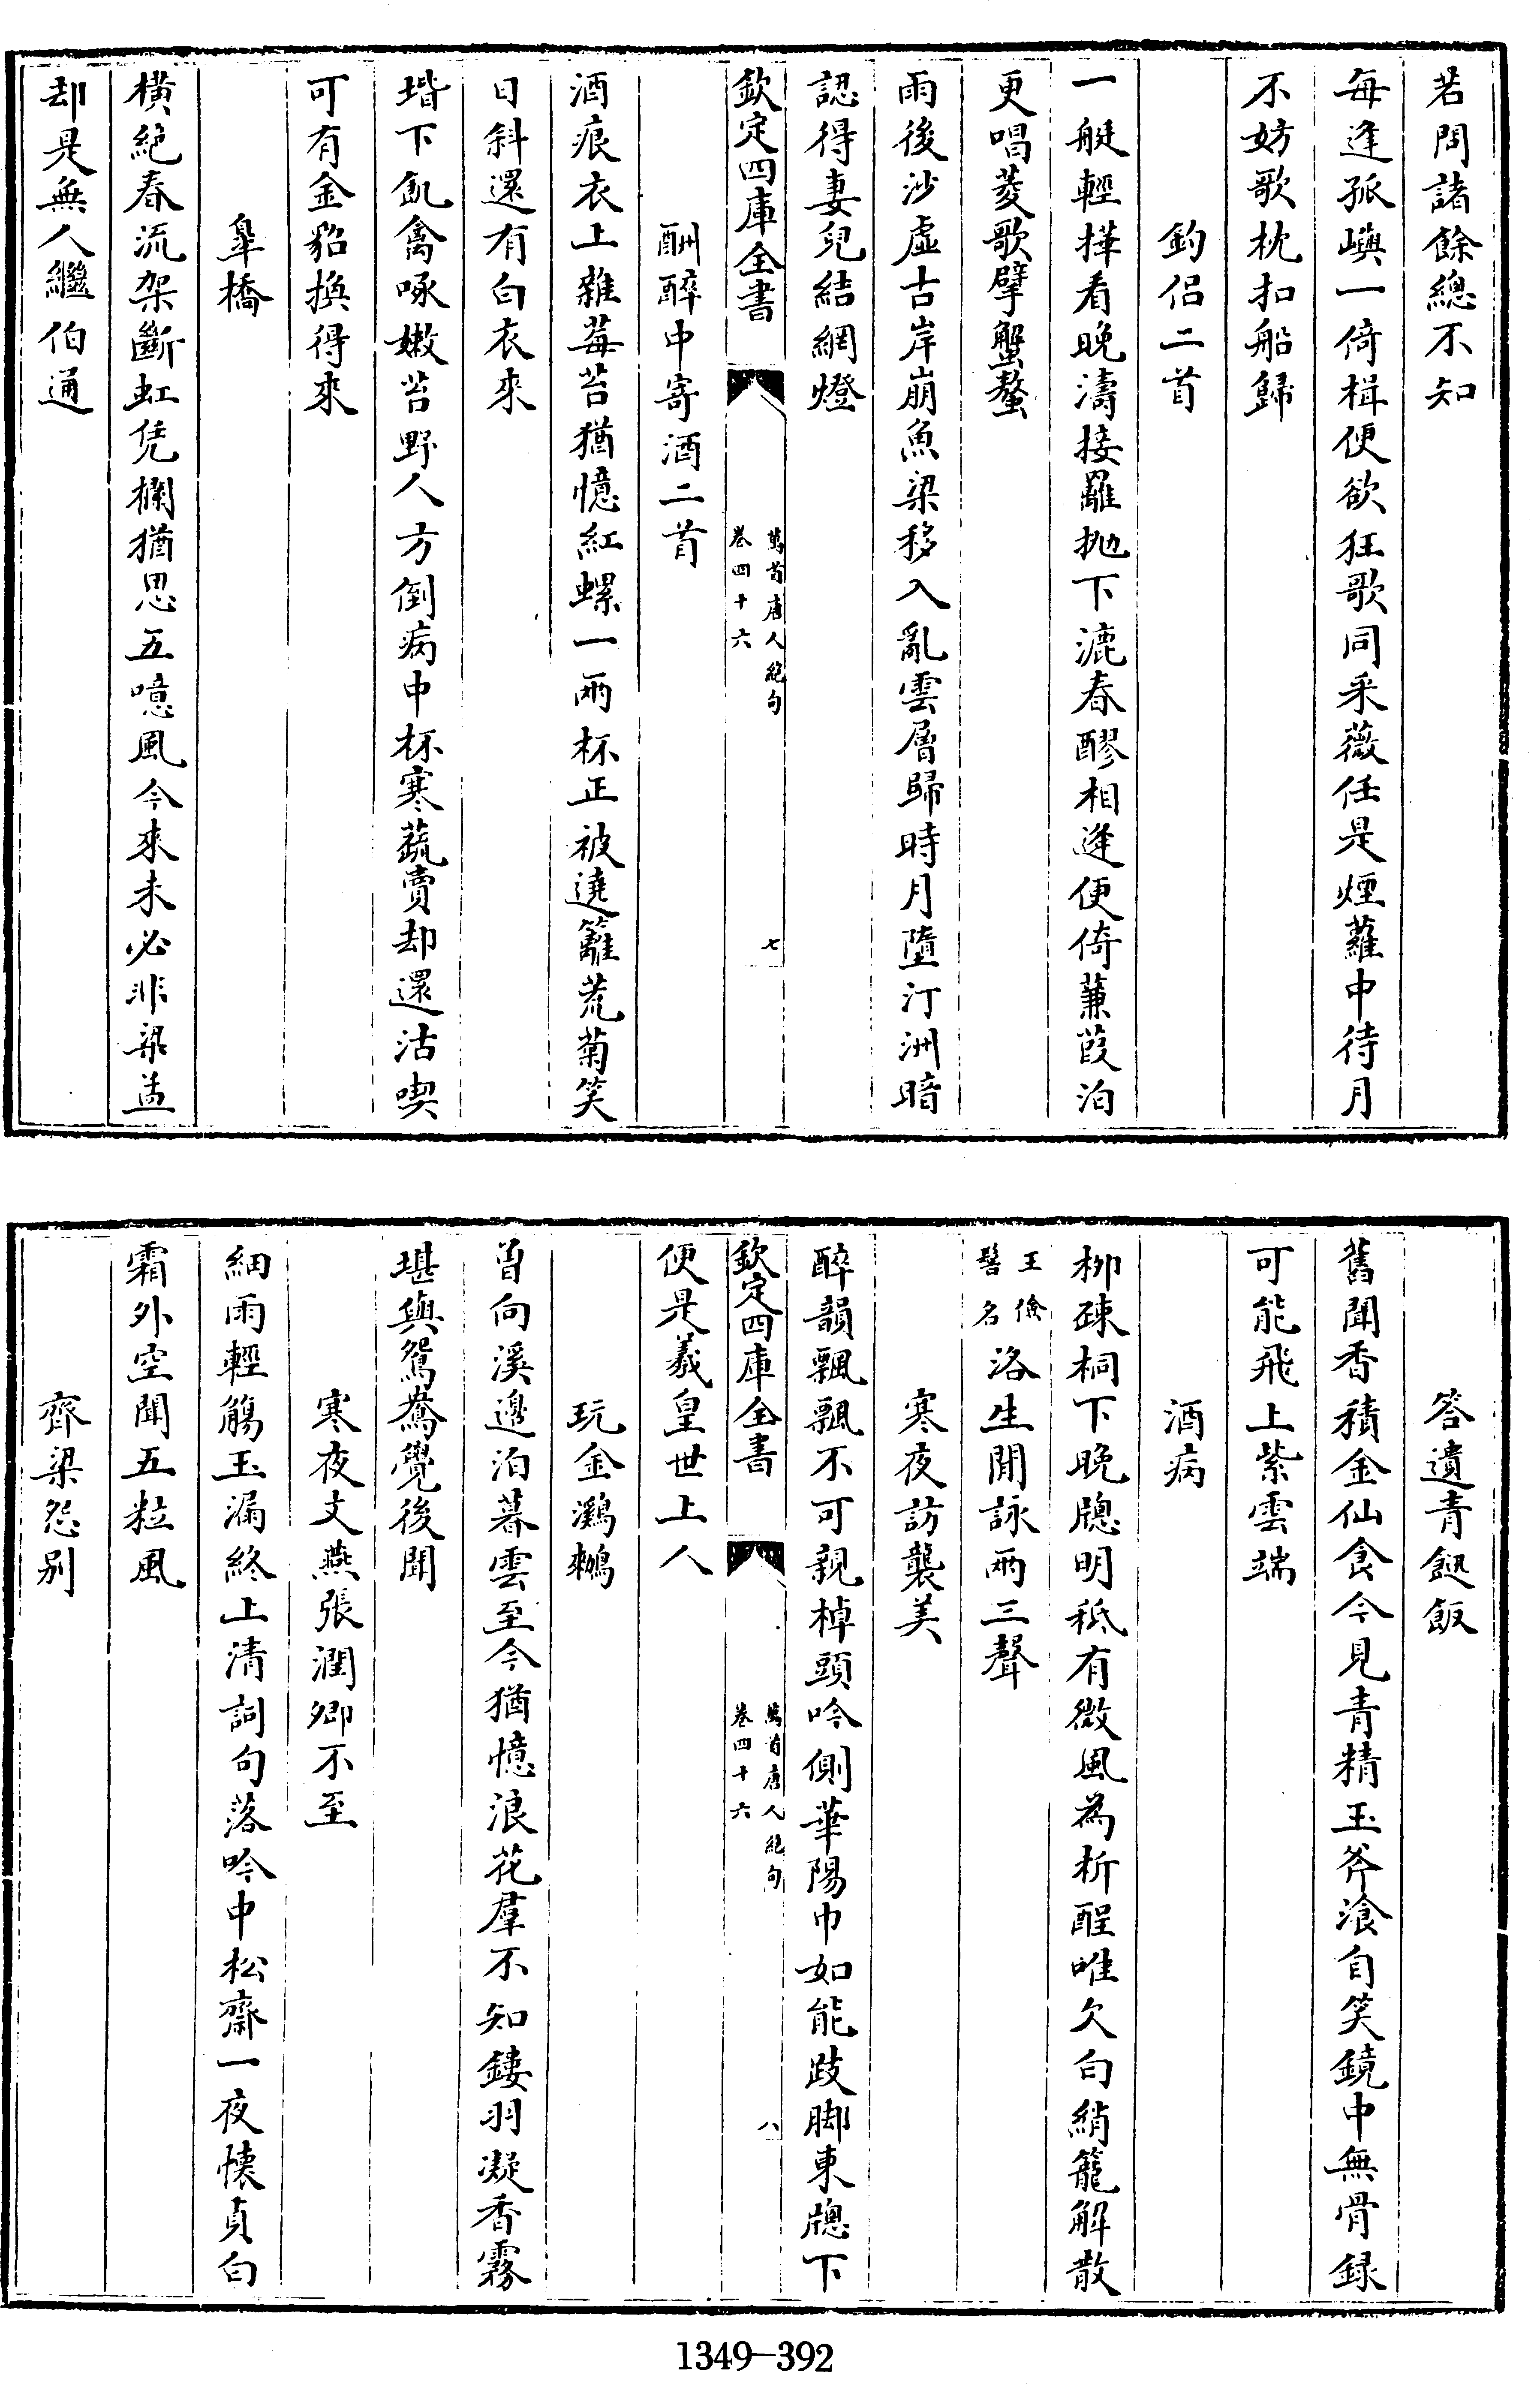 若問諸餘總不知
每逢孤嶼一倚楫便欲狂歌同采薇任是煙蘿中待月
不妨歌枕扣船歸
釣侣二首
一艇輕撶看晚濤接䍦抛下漉春醪相逢便倚蒹葭泊
更唱菱歌擘蟹螯
雨後沙虚古岸崩魚梁移入亂雲層歸時月墮汀洲暗
認得妻兒結網燈
欽定四庫全書
萬首唐人絶句
卷四十六
七
酬醉中寄酒二首
酒痕衣上雜莓苔猶憶紅螺一兩杯正被遶籬荒菊笑
日斜還有白衣來
堦下飢禽啄嫩苔野人方倒病中杯寒蔬賣却還沽喫
可有金貂換得來
臯橋
橫絶春流架斷虹凭欄猶思五噫風今來未必非梁孟
却是無人繼伯通
答遺青䭀飯
舊聞香積金仙食今見青精玉斧飡自笑鏡中無骨録
可能飛上紫雲端
酒病
柳疎桐下晚牕明秪有微風為析酲唯欠白綃籠解散
王儉
髻名
洛生閒詠兩三聲
寒夜訪襲美
醉韻飄飄不可親棹頭吟側華陽巾如能跂脚東牕下
欽定四庫全書
萬首唐人絶句
卷四十六
八
便是羲皇世上人
玩金鸂鶒
曽向溪邊泊暮雲至今猶憶浪花羣不知鏤羽凝香霧
堪與鴛鴦覺後聞
寒夜文燕張潤卿不至
細雨輕觴玉漏終上清詞句落吟中松齋一夜懷貞白
霜外空聞五粒風
齊梁怨别
1349-392